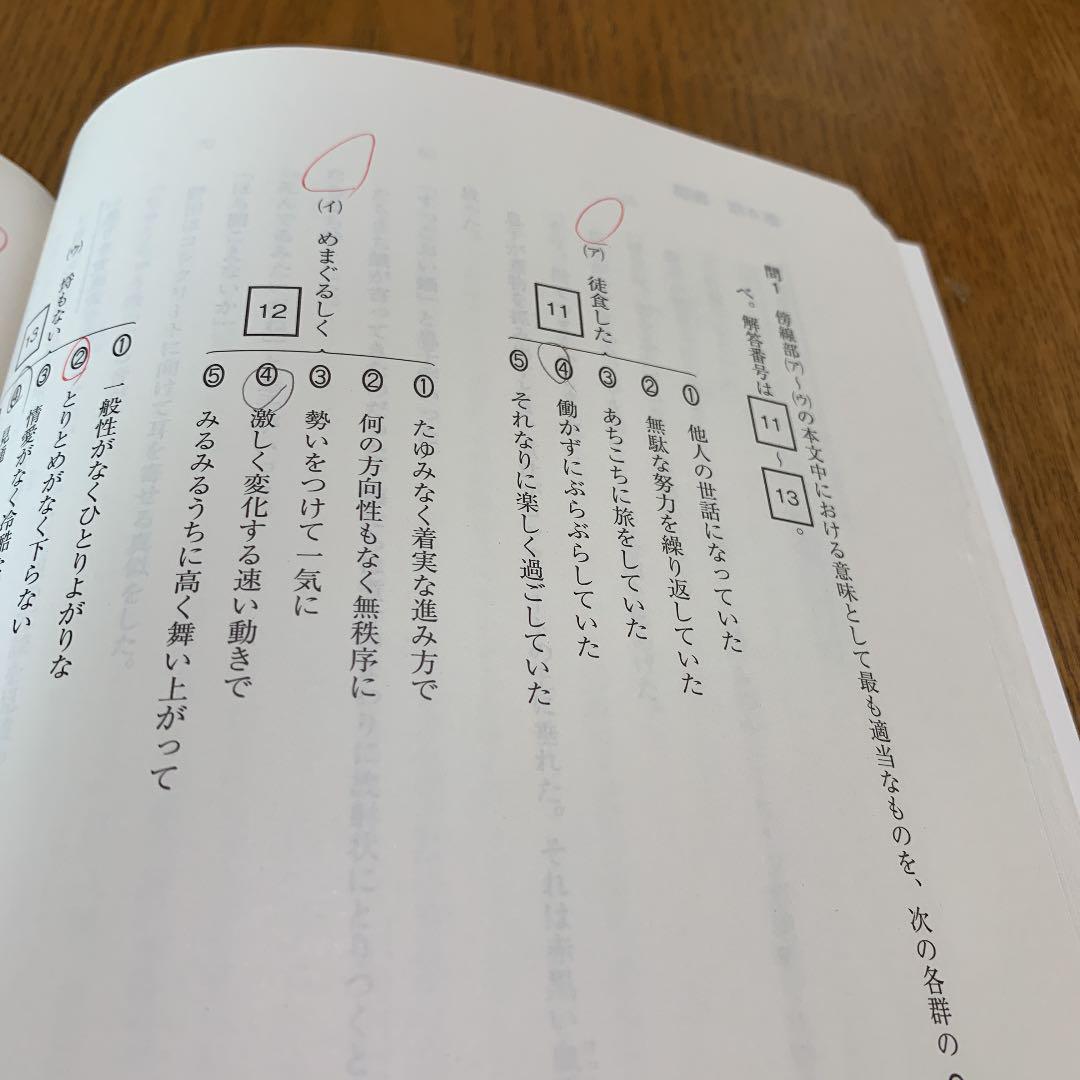 問1 傍線部(ア)～(ウ)の本文中における意味として最も適当なものを、次の各群の
べ。解答番号は 11 ～ 13 。
(ア) 徒食した 11
① 他人の世話になっていた
② 無駄な努力を繰り返していた
③ あちこちに旅をしていた
④ 働かずにぶらぶらしていた
⑤ それなりに楽しく過ごしていた
(イ) めまぐるしく 12
① たゆみなく着実な進み方で
② 何の方向性もなく無秩序に
③ 勢いをつけて一気に
④ 激しく変化する速い動きで
⑤ みるみるうちに高く舞い上がって
(ウ) 埒もない 13
① 一般性がなくひとりよがりな
② とりとめがなく下らない
③ 情愛がなく冷酷な
④